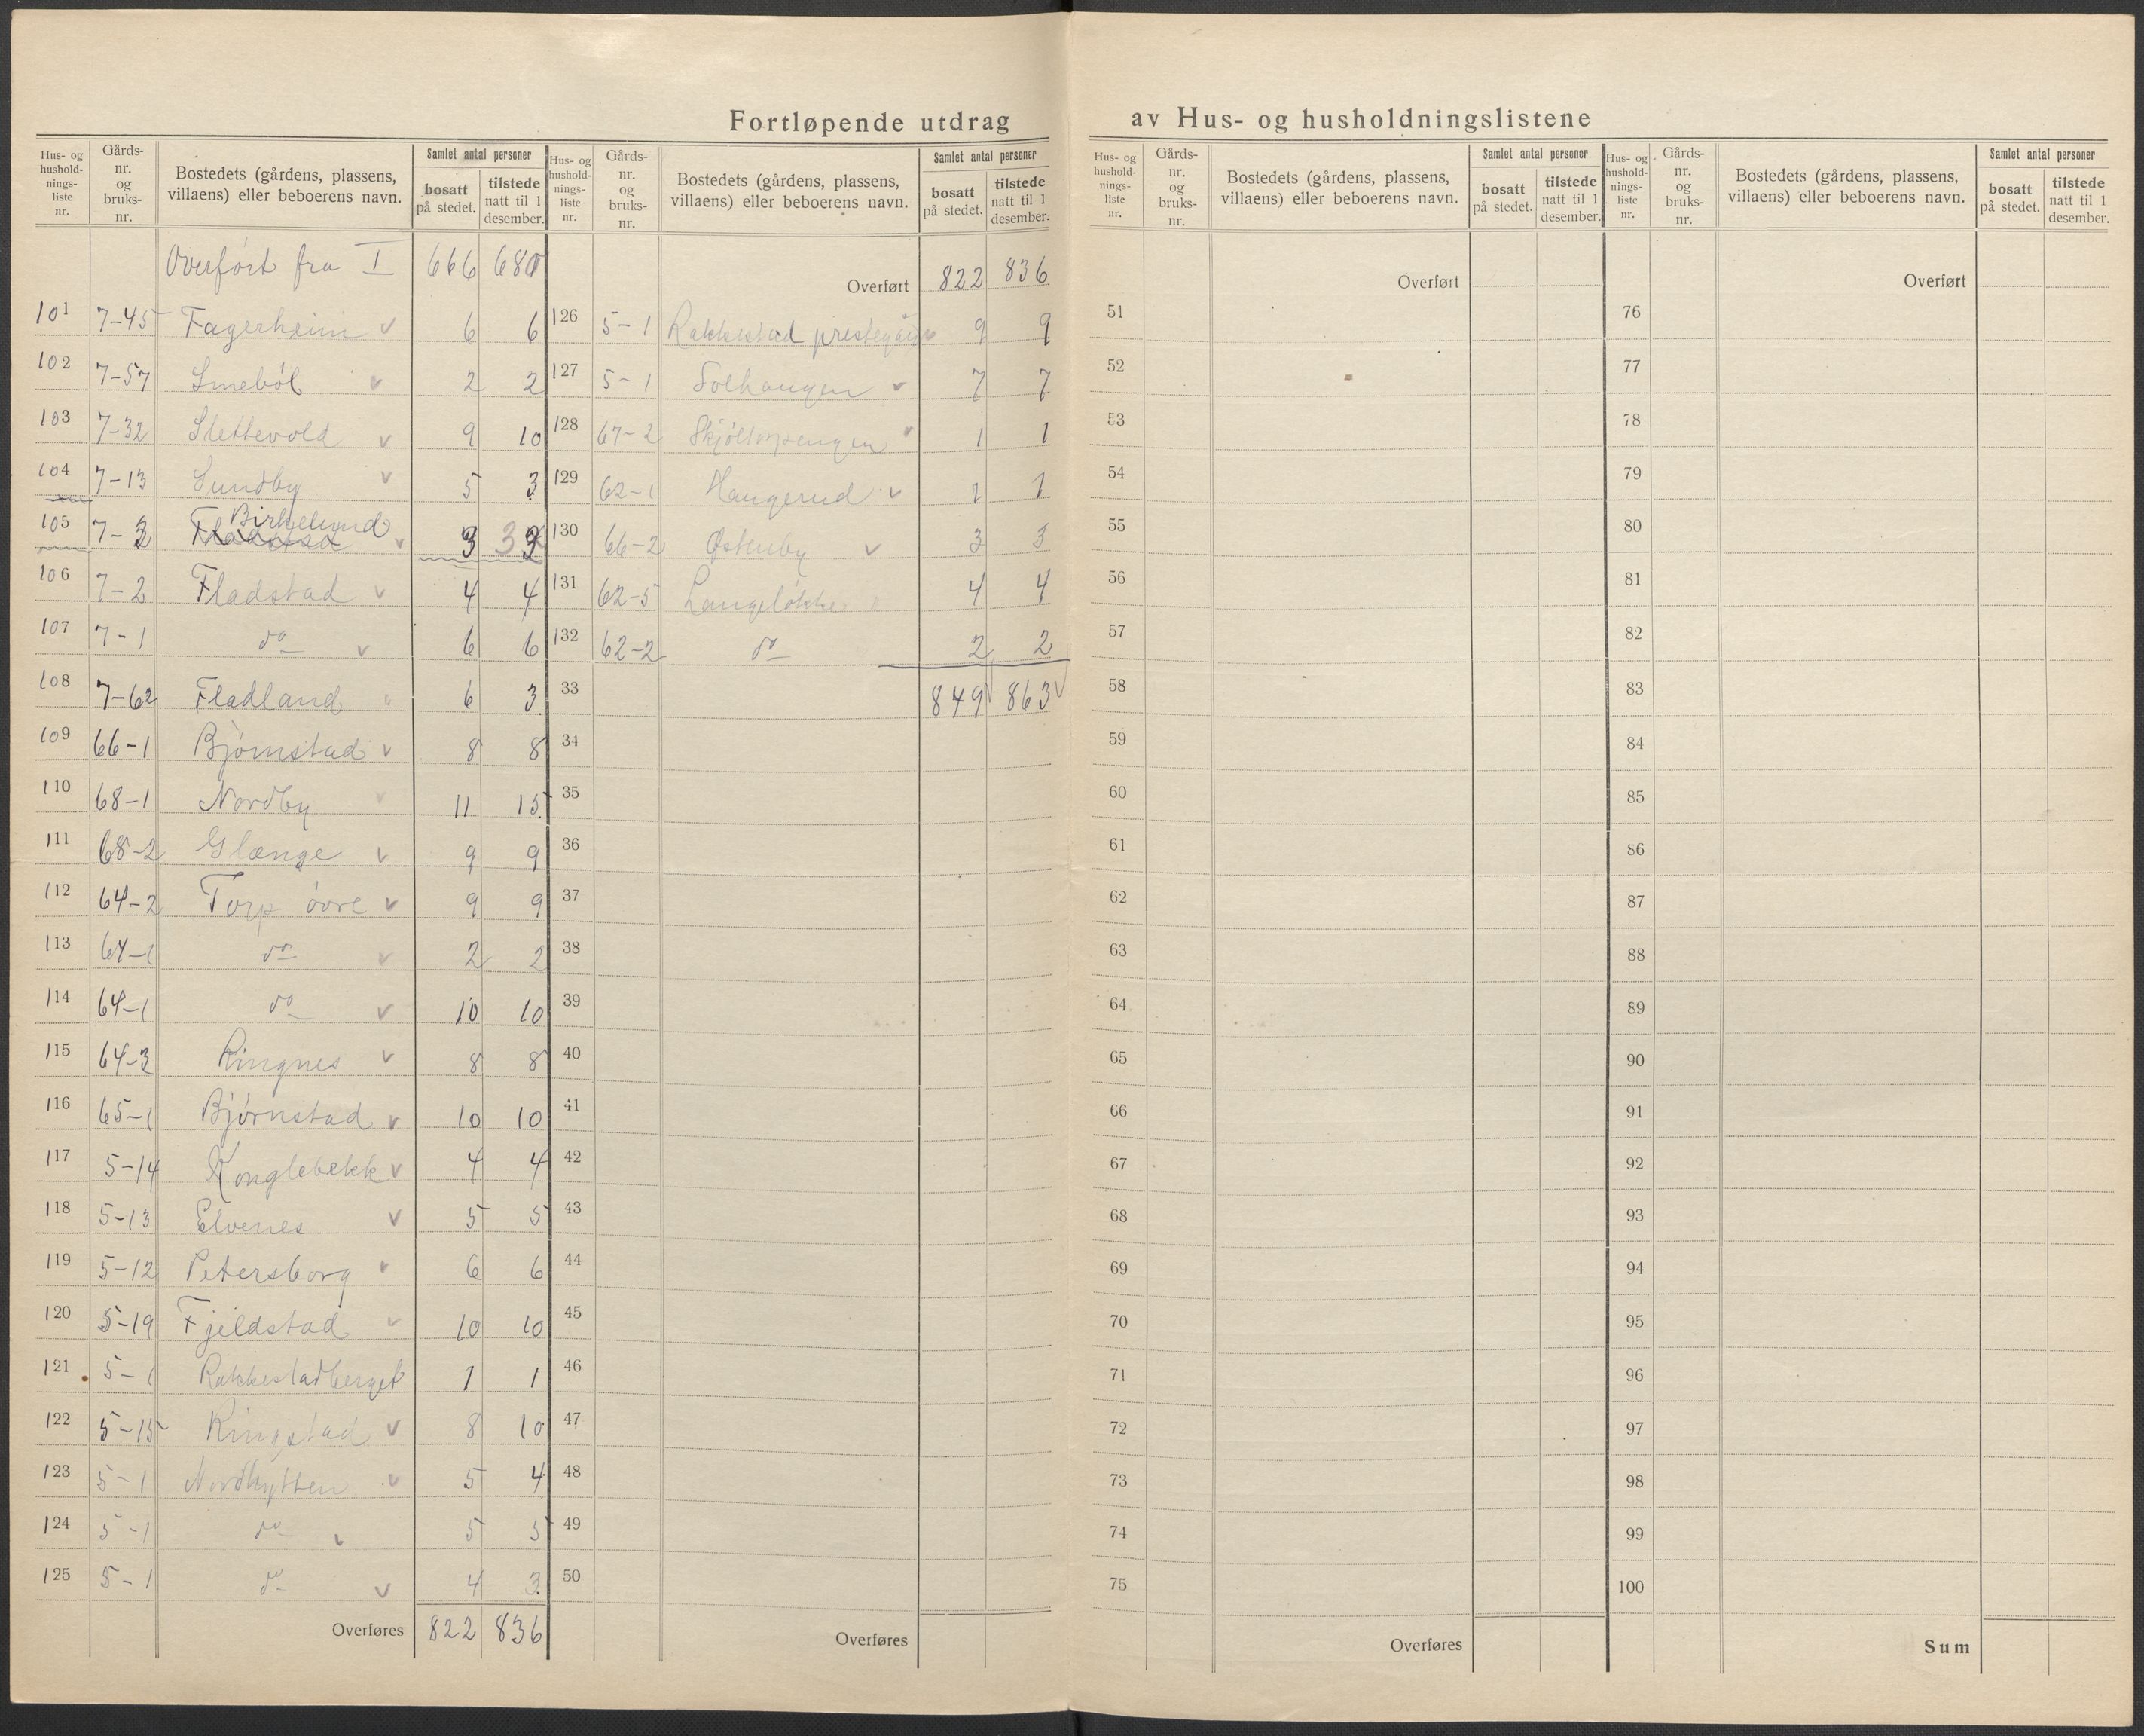 Fortløpende utdrag av Hus- og husholdningslistene
Hus- og hushold- nings- liste nr. Gårds- nr. og bruks- nr. Bostedets (gårdens, plassens, villaens) eller beboerens navn. Samlet antal personer bosatt på stedet. tilstede natt til 1 desember.
Overført fra I 666 680
101 7-45 Fagerheim v 6 6
102 7-57 Smebøl v 2 2
103 7-32 Slettevold v 9 10
104 7-13 Sundby v 5 3
105 7-3 Birkelund v 3 3
106 7-2 Fladstad v 4 4
107 7-1 do v 6 6
108 7-62 Fladland v 6 3
109 66-1 Bjørnstad v 8 8
110 68-1 Nordby v 11 15
111 68-2 Glænge v 9 9
112 64-2 Torp övre v 9 9
113 64-1 do v 2 2
114 64-1 do v 10 10
115 64-3 Ringnes v 8 8
116 65-1 Bjørnstad v 10 10
117 5-14 Konglebekk v 4 4
118 5-13 Elvenes v 5 5
119 5-12 Petersborg v 6 6
120 5-19 Fjeldstad v 10 10
121 5-1 Rakkestadberget 1 1
122 5-15 Ringstad v 8 10
123 5-1 Nordhytten v 5 4
124 5-1 do v 5 5
125 5-1 do v 4 3
Overføres 822 836
Hus- og hushold- nings- liste nr. Gårds- nr. og bruks- nr. Bostedets (gårdens, plassens, villaens) eller beboerens navn. Samlet antal personer bosatt på stedet. tilstede natt til 1 desember.
Overført 822 836
126 5-1 Rakkestad prestegård v 9 9
127 5-1 Solhaugen v 7 7
128 67-2 Skjøltorpengen v 1 1
129 62-1 Haugerud v 1 1
130 66-2 Østenby v 3 3
131 62-5 Langeløkke 4 4
132 62-2 do 2 2
33 849 v 863 v
34
35
36
37
38
39
40
41
42
43
44
45
46
47
48
49
50
Overføres
Hus- og hushold- nings- liste nr. Gårds- nr. og bruks- nr. Bostedets (gårdens, plassens, villaens) eller beboerens navn. Samlet antal personer bosatt på stedet. tilstede natt til 1 desember.
Overført
51
52
53
54
55
56
57
58
59
60
61
62
63
64
65
66
67
68
69
70
71
72
73
74
75
Overføres
Hus- og hushold- nings- liste nr. Gårds- nr. og bruks- nr. Bostedets (gårdens, plassens, villaens) eller beboerens navn. Samlet antal personer bosatt på stedet. tilstede natt til 1 desember.
Overført
76
77
78
79
80
81
82
83
84
85
86
87
88
89
90
91
92
93
94
95
96
97
98
99
100
Sum